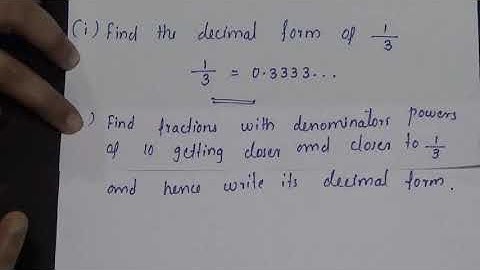 (i) Find the decimal form of 1/3
1/3 = 0.3333...
) Find fractions with denominators powers
of 10 getting closer and closer to 1/3
and hence write its decimal form.